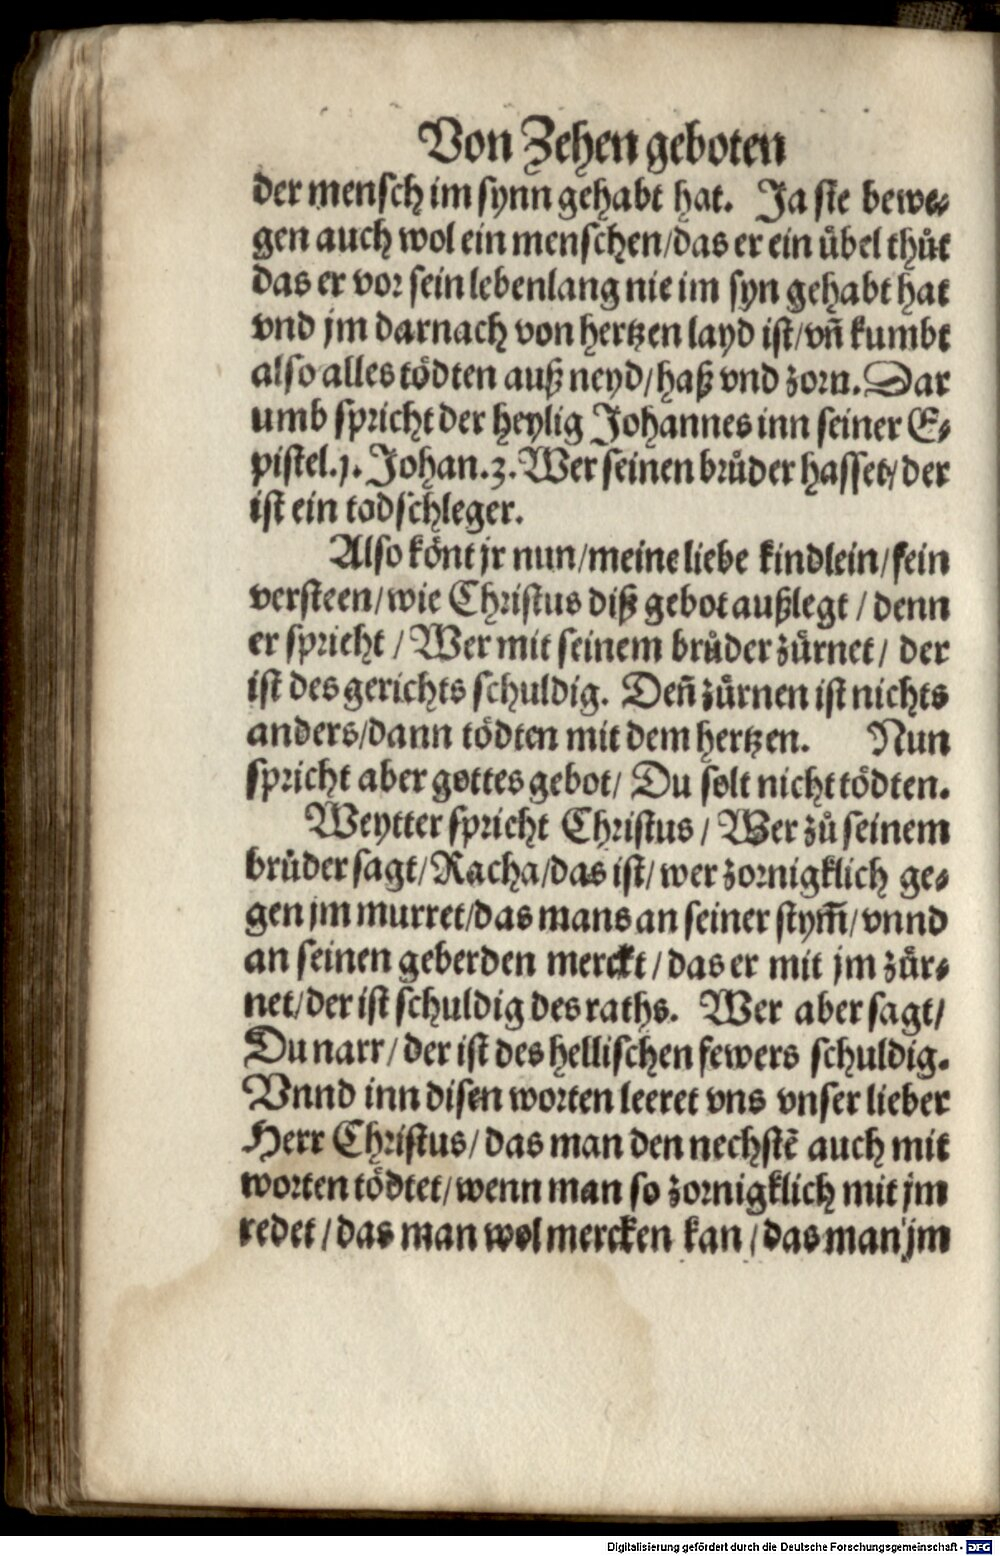 Von Zehen geboten
der mensch im synn gehabt hat. Ja sie bewe⸗
gen auch wol ein menschen/das er ein uͤbel thuͤt
das er vor sein lebenlang nie im syn gehabt hat
vnd jm darnach von hertzen layd ist/vñ kumbt
also alles toͤdten auß neyd/haß vnd zorn. Dar
umb spricht der heylig Johannes inn seiner E⸗
pistel.j. Johan.3. Wer seinen bruͦder hasset/der
ist ein todschleger.
Also koͤnt jr nun/meine liebe kindlein/fein
versteen/wie Christus diß gebot außlegt/denn
er spricht/Wer mit seinem bruͦder zuͤrnet/ der
ist des gerichts schuldig. Deñ zuͤrnen ist nichts
anders/dann toͤdten mit dem hertzen. Nun
spricht aber gottes gebot/ Du solt nicht toͤdten.
Weytter spricht Christus/Wer zuͦ seinem
bruͦder sagt/Racha/das ist/wer zornigklich ge⸗
gen jm murret/das mans an seiner stym̃/vnnd
an seinen geberden merckt/das er mit jm zuͤr⸗
net/der ist schuldig des raths. Wer aber sagt/
Du narr/der ist des hellischen fewers schuldig.
Vnnd inn disen worten leeret vns vnser lieber
Herr Christus/das man den nechstẽ auch mit
worten toͤdtet/wenn man so zornigklich mit jm
redet/das man wol mercken kan/das man jm
Digitalisierung gefördert durch die Deutsche Forschungsgemeinschaft - DFG